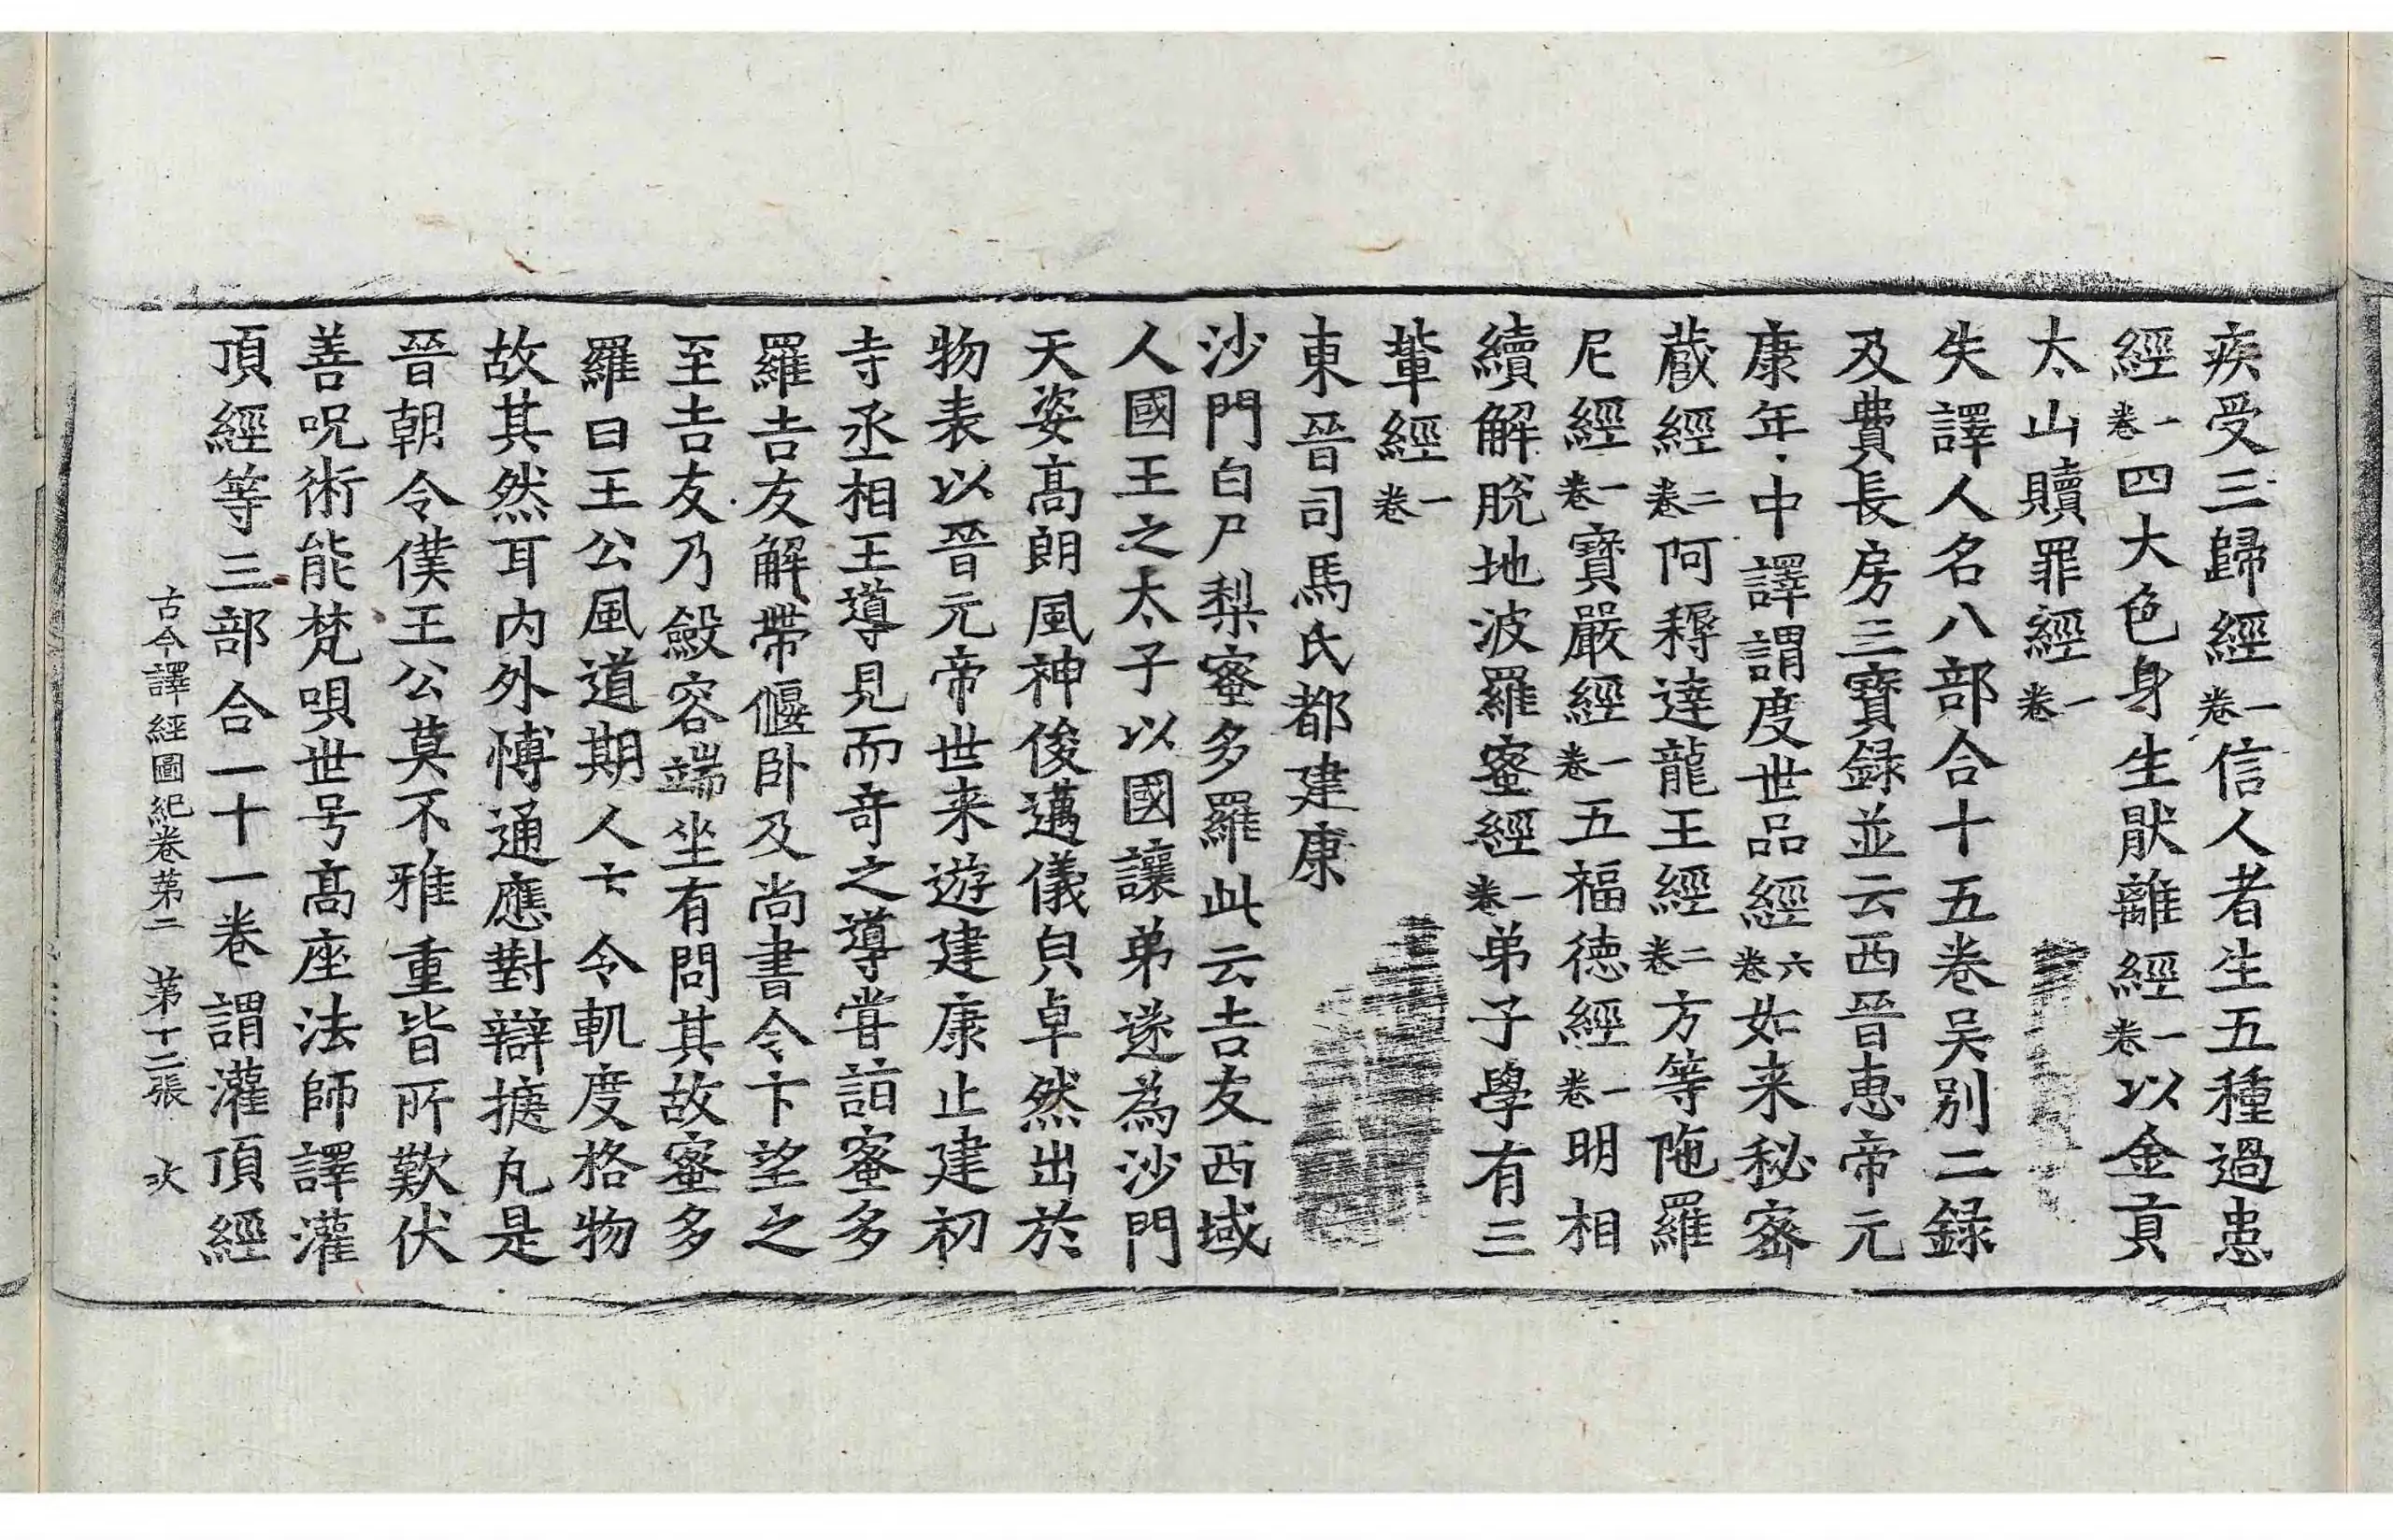 疾受三歸經一卷信人者生五種過患
經一卷四大色身生猒離經一卷以金貢
太山贖罪經一卷
失譯人名八部合十五卷吴別二録
及費長房三寶録並云西晉惠帝元
康年中譯謂度世品經六卷如来秘密
蔵經二卷阿耨達龍王經二卷方等陁羅
尼經一卷寶嚴經一卷五福徳經一卷明相
續解脫地波羅蜜經一卷弟子學有三
軰經一卷
東晉司馬氏都建康
沙門白尸梨蜜多羅此云吉友西域
人國王之太子以國讓弟遂為沙門
天姿髙朗風神俊邁儀皃卓然出於
物表以晉元帝世来遊建康止建初
寺丞相王導見而竒之導嘗詣蜜多
羅吉友解帶偃卧及尚書令卞望之
至吉友乃斂容端坐有問其故蜜多
羅曰王公風道期人卞令軌度格物
故其然耳内外愽通應對辯捷凢是
晉朝令僕王公莫不雅重皆所歎伏
善呪術能梵唄世号髙座法師譯灌
頂經等三部合一十一卷謂灌頂經
古今譯經圖紀卷苐二 苐十二張 次